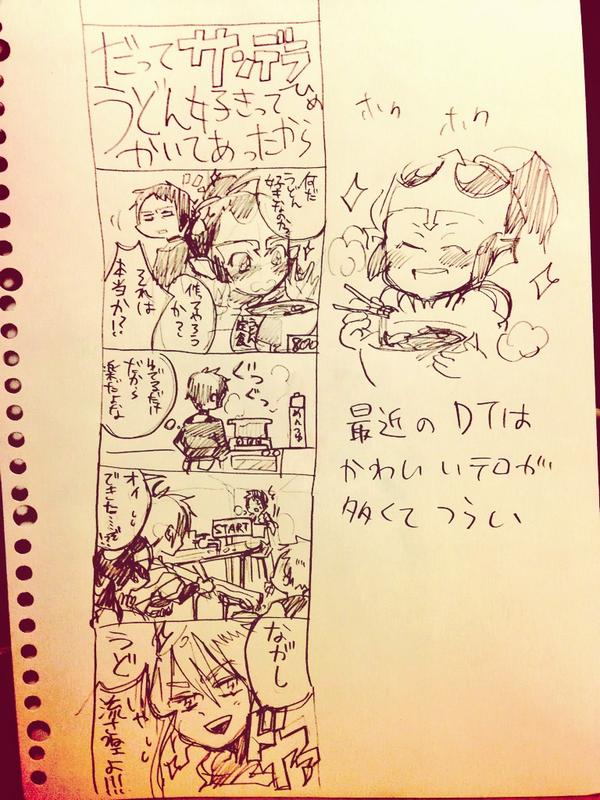 だってサンデラ
うどん好きって
かいてあったから
何だ
うどん
好きなのか
作ってやろう
か?
それは
本当か?!
うどん
定食
800
ぐつ
ぐつ
めんつゆ
ゆでるだけ
だから
楽だよな
START
オイ
できた
ながし
うど
いや
流さねェよ!!!
ホク
ホク
最近のDTは
かわいいテロが
多くてつらい